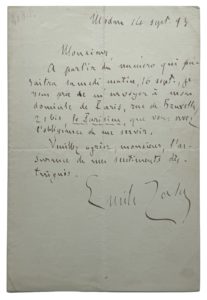 Medan 14 sept 93
Monsieur,
A partir du numéro qui pa-
raîtra samedi matin, 16 sept., je
vous prie de m'envoyer à mon
domicile de Paris, rue de Bruxelles
21 bis, le Parisien, que vous avez
l'obligeance de me servir.
Veuillez agréer, monsieur, l'as-
surance de mes sentiments dis-
tingués.
Emile Zola